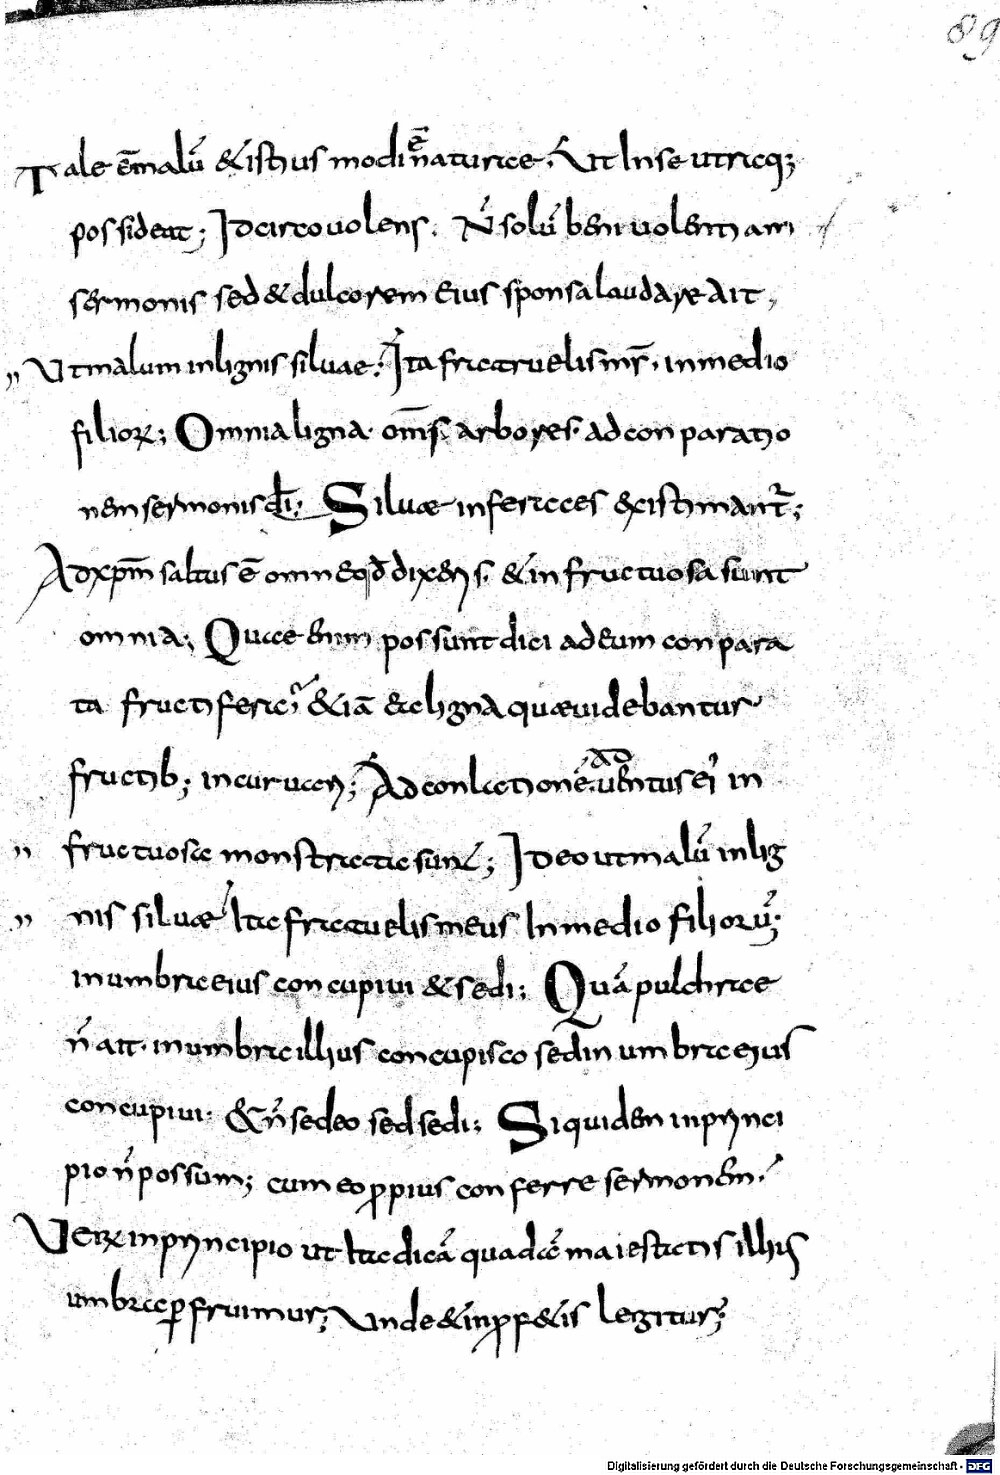 89
Tale e͞malū & istius modi e͞ naturae. Ut in se utraq;
possideat; Idcirco volens. N̄ solū benivolentiam
sermonis sed & dulcorem eius sponsa laudare ait,
„ Ut malum in lignis silvae. Ita fratruelis m͞s. in medio
filioꝝ; Omnia ligna. om͞s arbores. ad conparatio
nem sermonis dī; Silvae infera&ces existimant᷑;
Ad xp͞m saltus ē omne qđ dixeris. & infructuosa sunt
omnia; Quae enim possunt dici ad eum conpara
ta fructifera; & iā & ligna quae videbantur
fructib; incurvari; Ad conlationē. adventus ei in
„ fructuosa monstrata sunt; Ideo ut malū in lig
„ nis silvae Ita fratruelis meus In medio filiorū;
in umbra eius concupivi & sedi; Quā pulchrae
n̄ ait. in umbra illius concupisco sed in umbra eius
concupivi. & n̄ sedeo sed sedi; Siquidem in princi
pio n̄ possum; cum eo ꝓpius conferre sermonem.
Veꝝ in principio ut ita dicā quadā maiestatis illius
umbra ꝑfruimur; Unde & in ꝓf&is legitur;
Digitalisierung gefördert durch die Deutsche Forschungsgemeinschaft - DFG